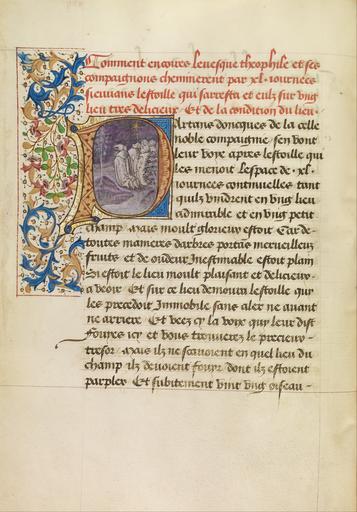 Comment encores levesque theophile et ses
compaignons cheminerent par .xl. iournees
sieuuans lestoille qui sarresta et eulz sur vng
lieu tres delicieux. Et de la condition du lieu.
Partans doncques de la celle
noble compaignie sen vont
leur voye apres lestoille qui
les menoit lespace de .xl.
iournees continuelles tant
quilz vindrent en vng lieu
admirable et en vng petit
champ. Mais moult glorieux estoit. Car de
toutes manieres darbres portans merveilleux
fruits et de oudeur Inestimable estoit plain
Si estoit le lieu moult plaisant et delicieux
a veoir. Et sur ce lieu demoura lestoille qui
les precedoit Immobile sans aler ne auant
ne arriere. Et veez cy la voix qui leur dist
fouyes icy et vous trouuerez le precieux
tresor. Mais ilz ne scauoient en quel lieu du
champ ilz deuoient fouyr dont ilz estoient
parplex. Et subitement vint vng oiseau